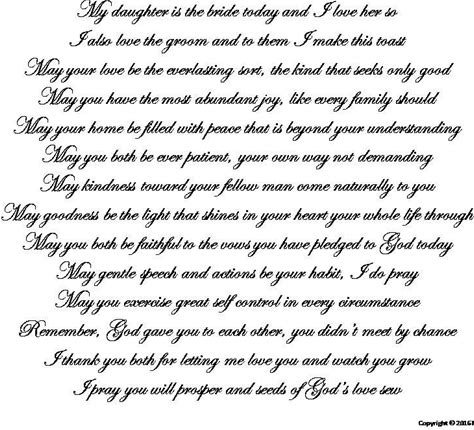 My daughter is the bride today and I love her so
I also love the groom and to them I make this toast
May your love be the everlasting sort, the kind that seeks only good
May you have the most abundant joy, like every family should
May your home be filled with peace that is beyond your understanding
May you both be ever patient, your own way not demanding
May kindness toward your fellow man come naturally to you
May goodness be the light that shines in your heart your whole life through
May you both be faithful to the vows you have pledged to God today
May gentle speech and actions be your habit, I do pray
May you exercise great self control in every circumstance
Remember, God gave you to each other, you didn't meet by chance
I thank you both for letting me love you and watch you grow
I pray you will prosper and seeds of God's love sew
Copyright © 2016